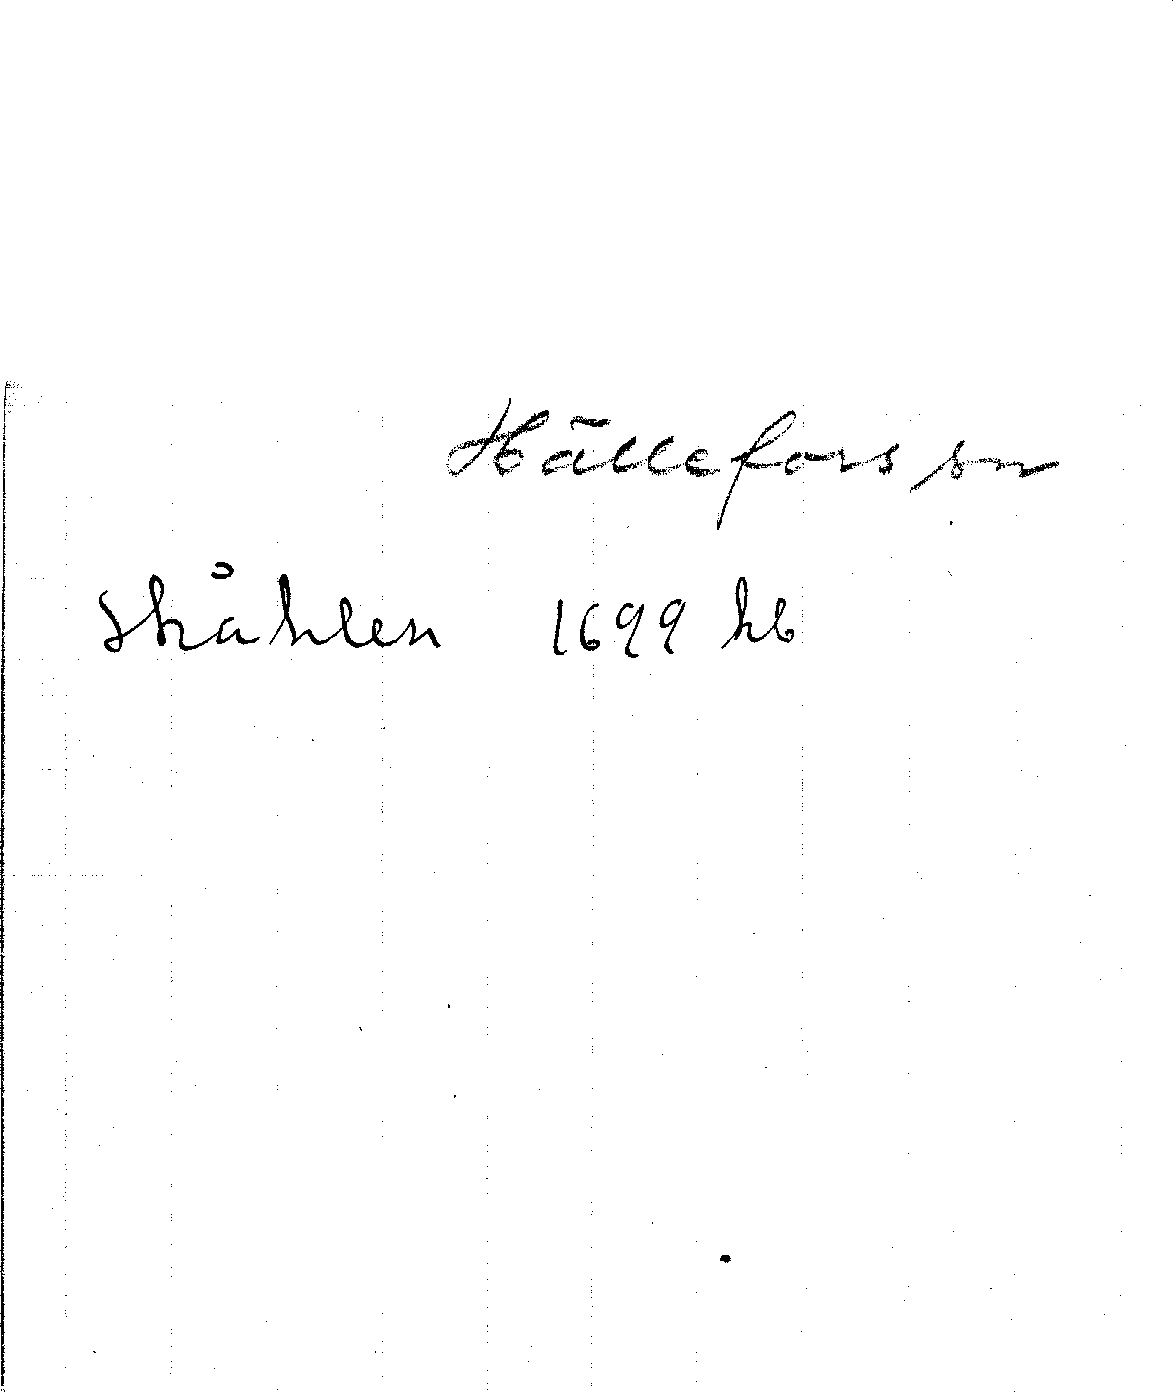 Hällefors sn
Skåhlen 1699 hb